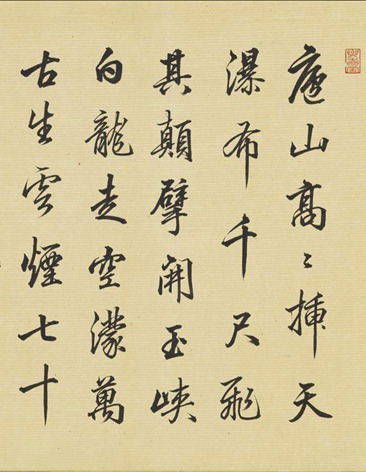 廬山高〻揷天
瀑布千尺飛
其顛擘開玉峽
白龍走空濛萬
古生雲煙七十